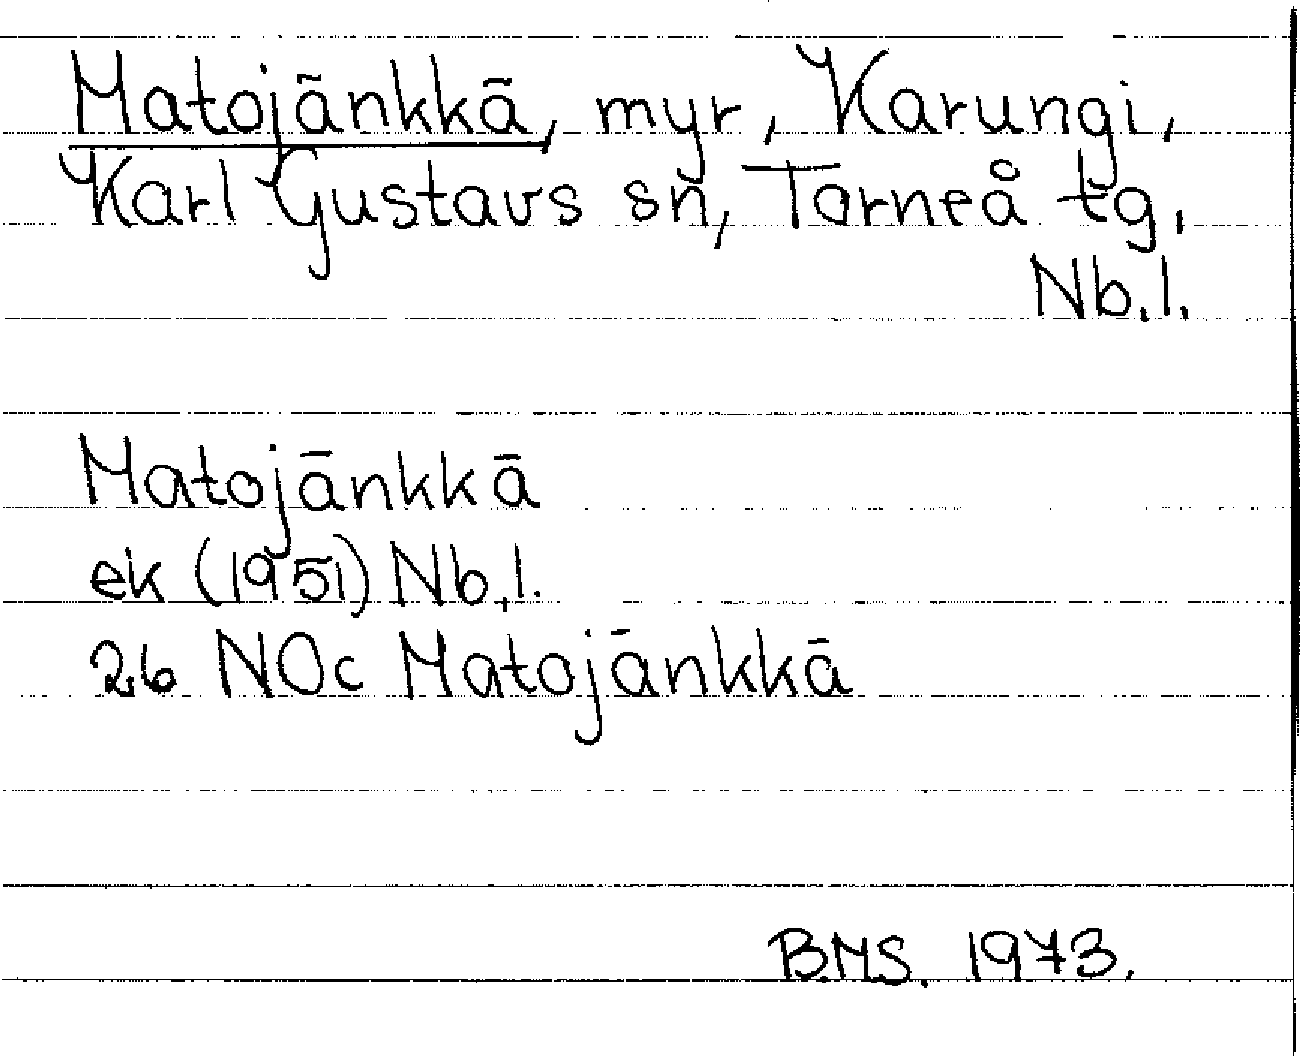 Matojänkkä, myr, Karungi,
Karl Gustavs sn, Torneå tg.
Nb.l.
Matojänkkä
ek (1951) Nb.l.
26 NOc Matojänkkä
B.M.S. 1973.